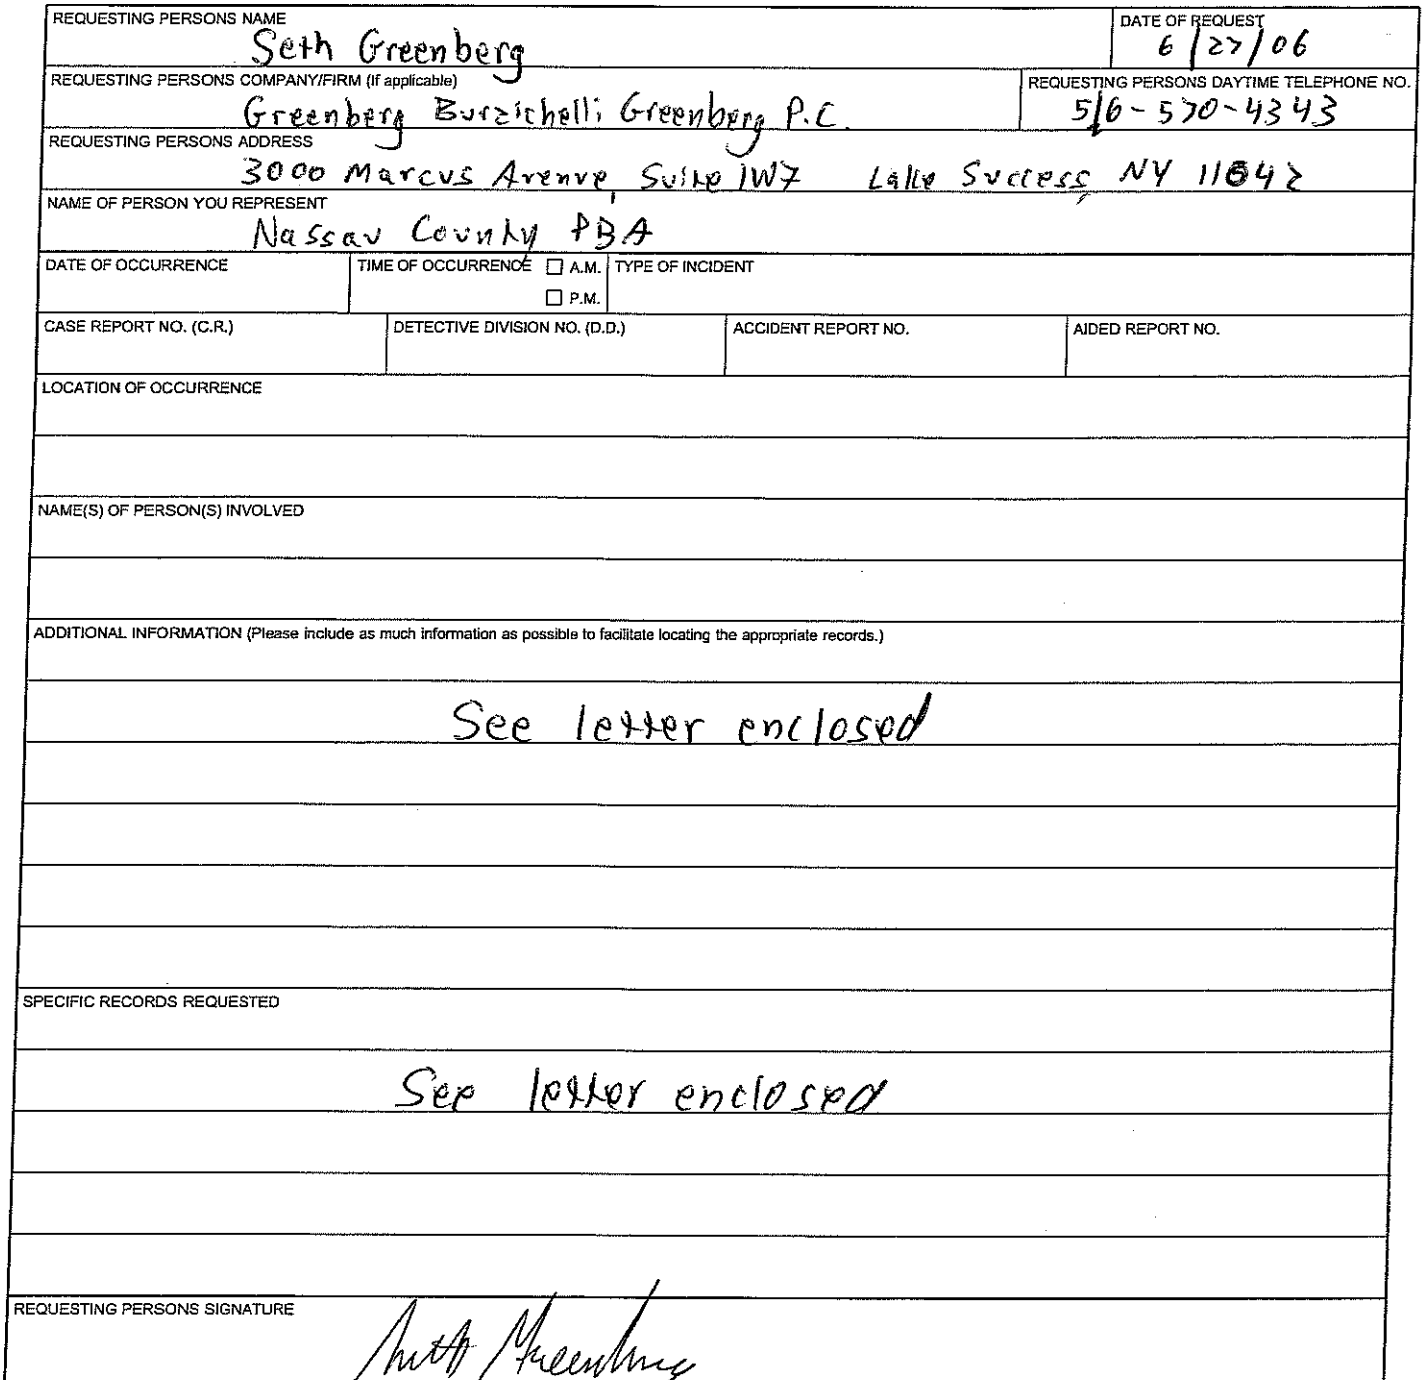 REQUESTING PERSONS NAME
Seth Greenberg
DATE OF REQUEST
6/27/06
REQUESTING PERSONS COMPANY/FIRM (If applicable)
Greenberg Burzichelli Greenberg P.C.
REQUESTING PERSONS DAYTIME TELEPHONE NO.
516-570-4343
REQUESTING PERSONS ADDRESS
3000 Marcus Avenue, Suite 1W7 Lake Success, NY 11042
NAME OF PERSON YOU REPRESENT
Nassau County PBA
DATE OF OCCURRENCE
TIME OF OCCURRENCE A.M.
P.M.
TYPE OF INCIDENT
CASE REPORT NO. (C.R.)
DETECTIVE DIVISION NO. (D.D.)
ACCIDENT REPORT NO.
AIDED REPORT NO.
LOCATION OF OCCURRENCE
NAME(S) OF PERSON(S) INVOLVED
ADDITIONAL INFORMATION (Please include as much information as possible to facilitate locating the appropriate records.)
See letter enclosed
SPECIFIC RECORDS REQUESTED
See letter enclosed
REQUESTING PERSONS SIGNATURE
Seth Greenberg